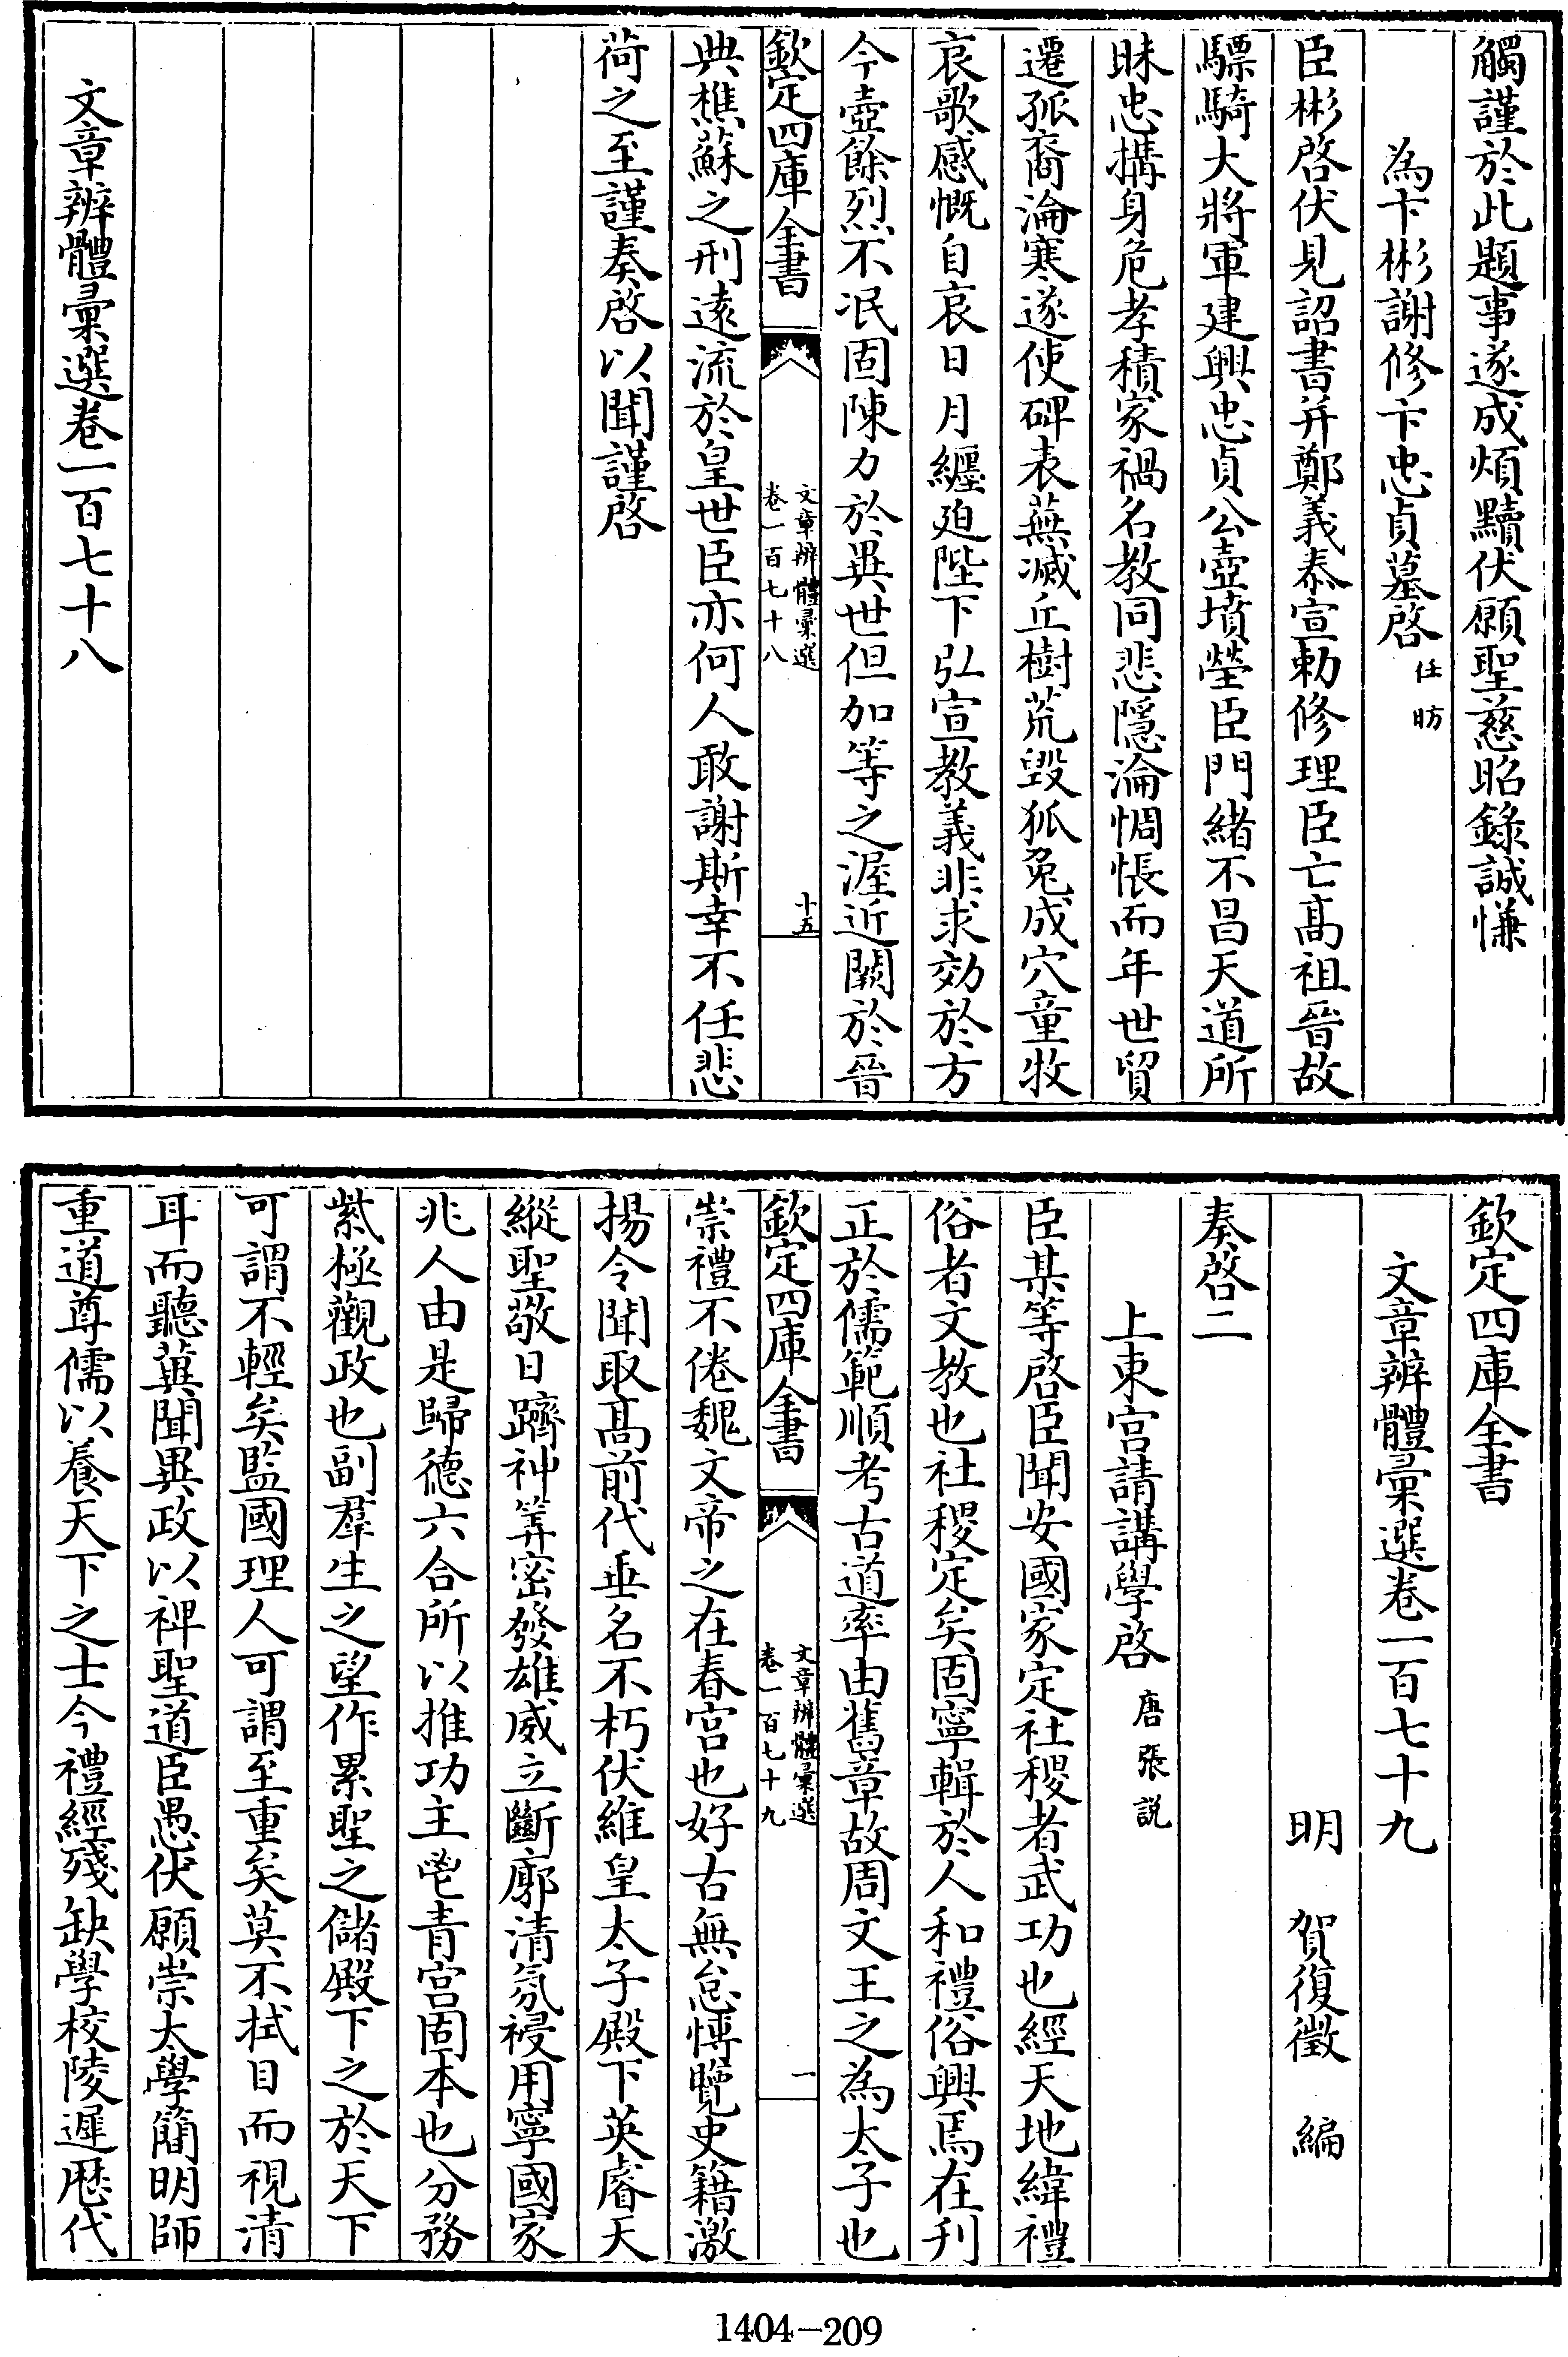 觸謹於此題事遂成煩黷伏願聖慈昭錄誠慊
為卞彬謝修卞忠貞墓啓任昉
臣彬啓伏見詔書并鄭義泰宣勅修理臣亡髙祖晉故
驃騎大將軍建興忠貞公壼墳塋臣門緒不昌天道所
昧忠搆身危孝積家禍名教同悲隱淪惆悵而年世貿
遷孤裔淪寒遂使碑表蕪滅丘樹荒毁狐兔成穴童牧
哀歌感慨自哀日月纏迫陛下弘宣教義非求効於方
今壼餘烈不泯固陳力於異世但加等之渥近闕於晉
欽定四庫全書
文章辨體彚選
卷一百七十八
十五
典樵蘇之刑逺流於皇世臣亦何人敢謝斯幸不任悲
荷之至謹奏啓以聞謹啓
文章辨體彚選卷一百七十八
欽定四庫全書
文章辨體彚選卷一百七十九
明 賀復徵 編
奏啓二
上東宫請講學啓唐張説
臣某等啓臣聞安國家定社稷者武功也經天地緯禮
俗者文教也社稷定矣固寧輯於人和禮俗興焉在刋
正於儒範順考古道率由舊章故周文王之為太子也
欽定四庫全書
文章辨體彚選
卷一百七十九
一
崇禮不倦魏文帝之在春宫也好古無怠博覽史籍激
揚令聞取髙前代垂名不朽伏維皇太子殿下英睿天
縱聖敬日躋神筭密發雄威立斷廓清氛祲用寧國家
兆人由是歸德六合所以推功主鬯青宫固本也分務
紫極觀政也副羣生之望作累聖之儲殿下之於天下
可謂不輕矣監國理人可謂至重矣莫不拭目而視清
耳而聽冀聞異政以裨聖道臣愚伏願崇太學簡明師
重道尊儒以養天下之士今禮經殘缺學校陵遲厯代
1404-209